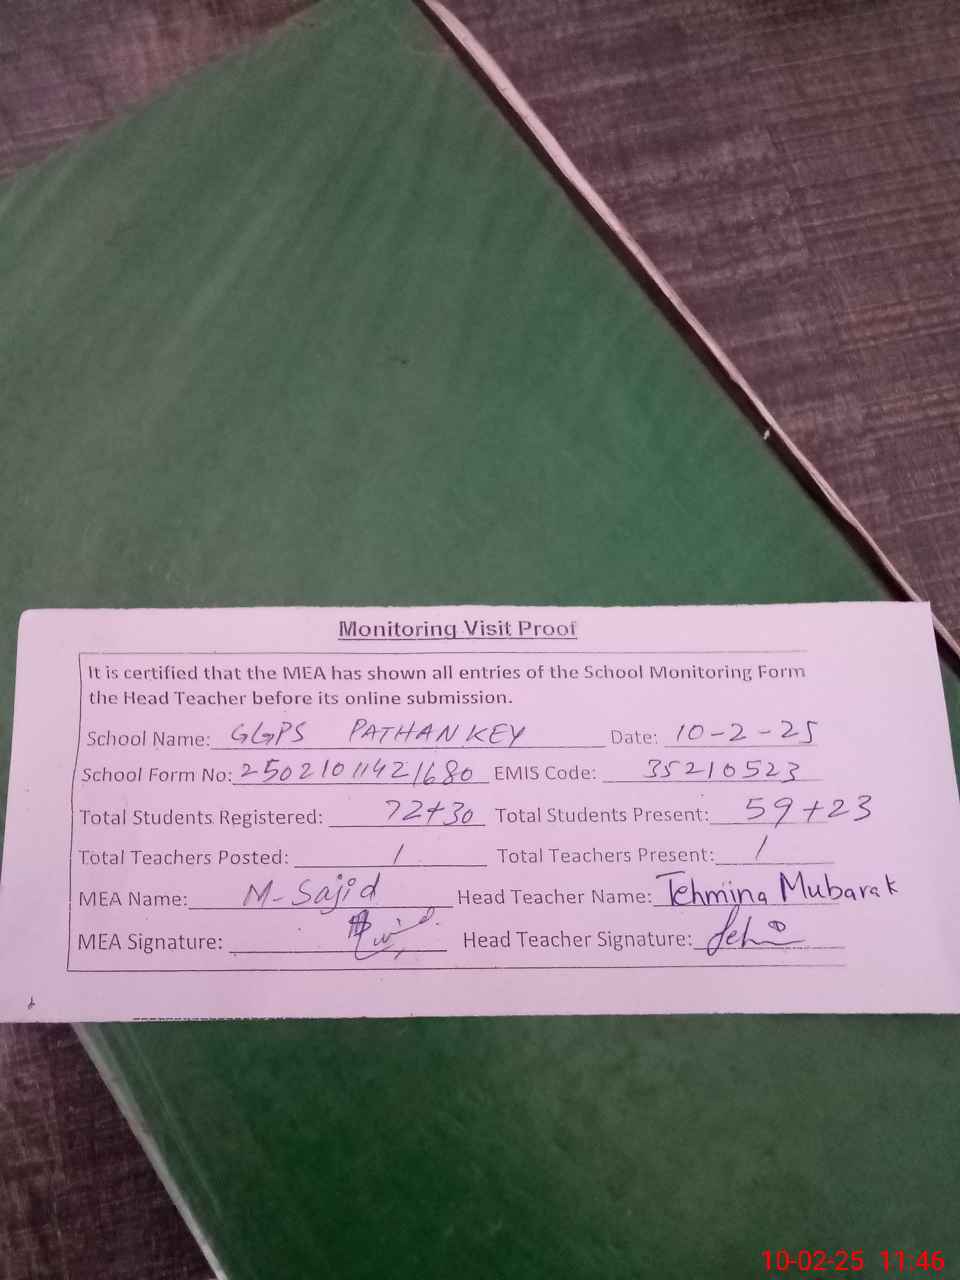 Monitoring Visit Proof
It is certified that the MEA has shown all entries of the School Monitoring Form
the Head Teacher before its online submission.
School Name: GGPS PATHANKEY Date: 10-2-25
School Form No: 25021011421680 EMIS Code: 35210523
Total Students Registered: 72+30 Total Students Present: 59+23
Total Teachers Posted: 1 Total Teachers Present: 1
MEA Name: M-Sajid Head Teacher Name: Tehmina Mubarak
MEA Signature: Head Teacher Signature:
10-02-25 11:46